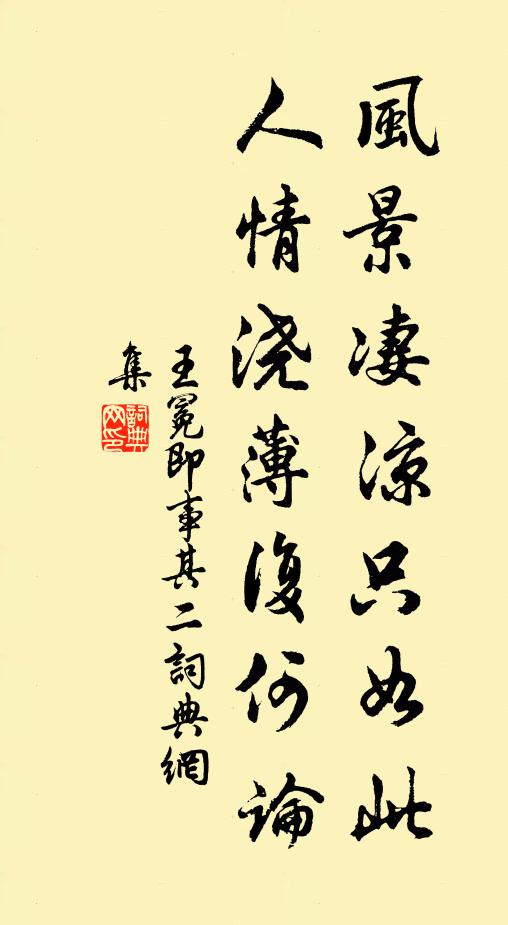 風景凄凉只如此
人情浇薄復何論
王冕即事其二詞典網
集
詞典
网印